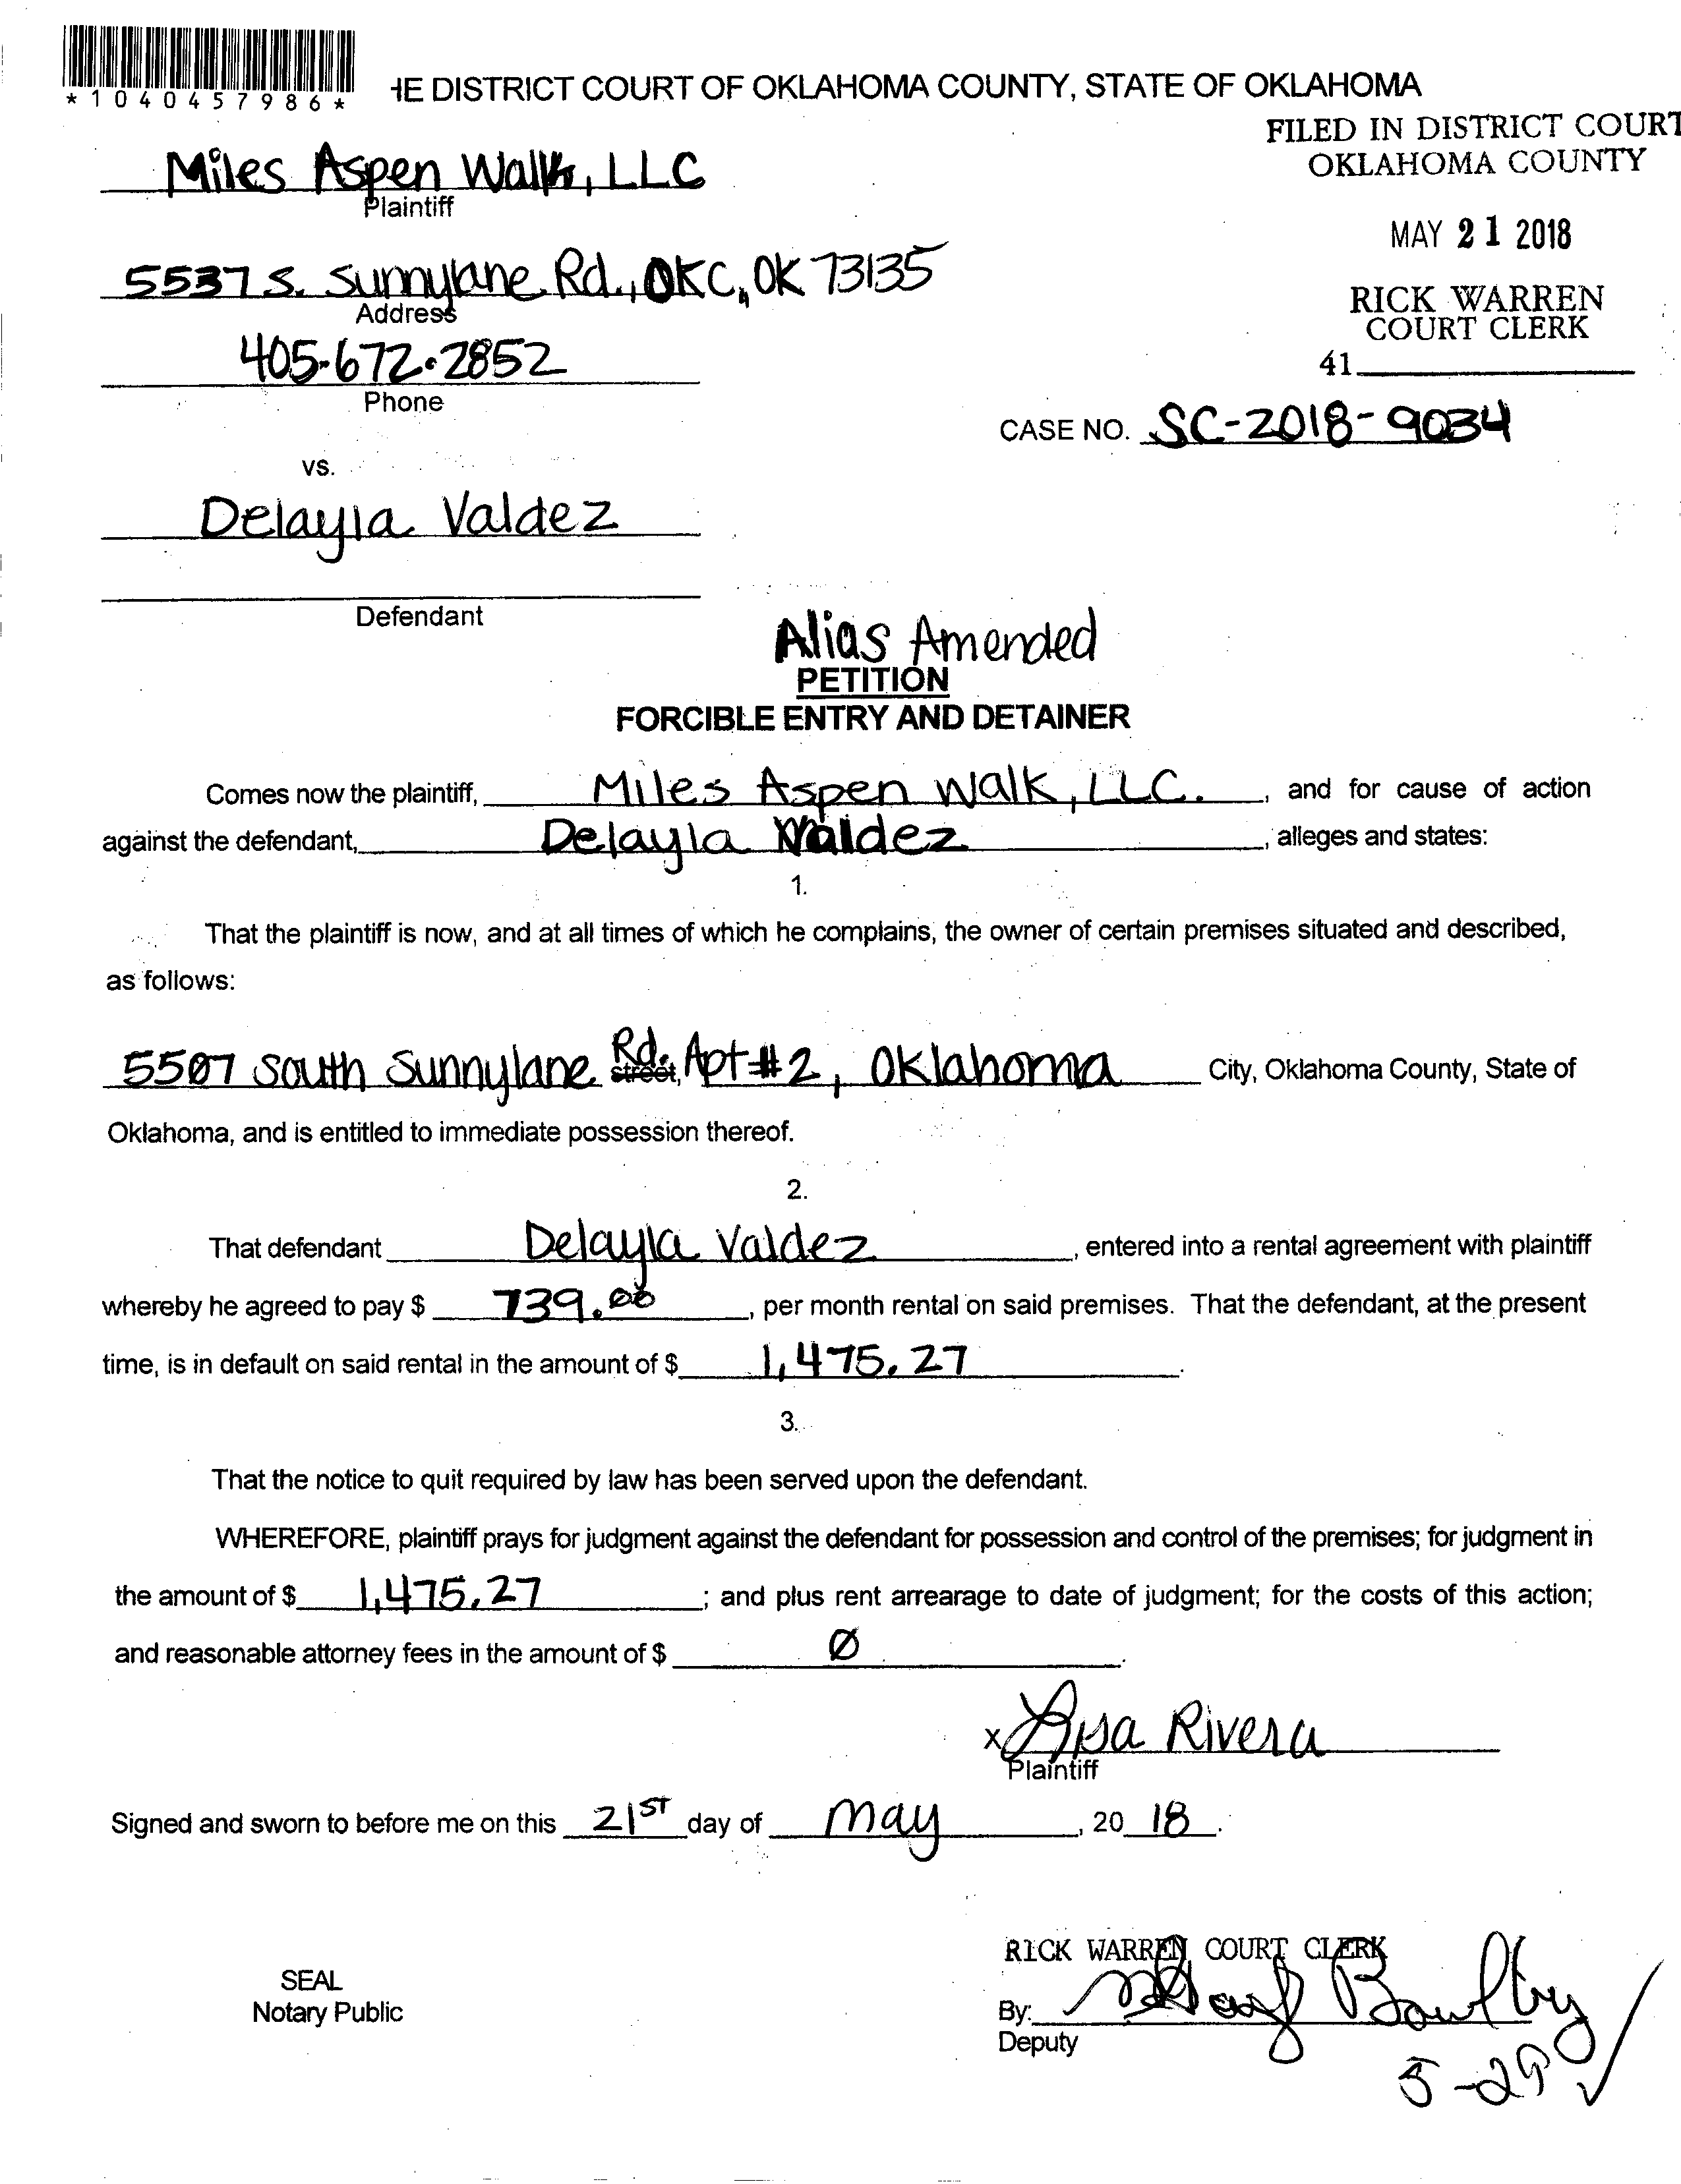 *1040457986*
HE DISTRICT COURT OF OKLAHOMA COUNTY, STATE OF OKLAHOMA
FILED IN DISTRICT COURT
OKLAHOMA COUNTY
MAY 21 2018
RICK WARREN
COURT CLERK
41
Miles Aspen Walk, LLC
Plaintiff
5537 S. Sunnylane Rd., OKC, OK 73135
Address
405-672-2852
Phone
CASE NO. SC-2018-9034
vs.
Delayla Valdez
Defendant
Alias Amended
PETITION
FORCIBLE ENTRY AND DETAINER
Comes now the plaintiff, Miles Aspen Walk, LLC. , and for cause of action
against the defendant, Delayla Valdez , alleges and states:
1.
That the plaintiff is now, and at all times of which he complains, the owner of certain premises situated and described,
as follows:
5507 South Sunnylane Rd. street, Apt #2, Oklahoma City, Oklahoma County, State of
Oklahoma, and is entitled to immediate possession thereof.
2.
That defendant Delayla Valdez , entered into a rental agreement with plaintiff
whereby he agreed to pay $ 739.00 , per month rental on said premises. That the defendant, at the present
time, is in default on said rental in the amount of $ 1,475.27 .
3.
That the notice to quit required by law has been served upon the defendant.
WHEREFORE, plaintiff prays for judgment against the defendant for possession and control of the premises; for judgment in
the amount of $ 1,475.27 ; and plus rent arrearage to date of judgment; for the costs of this action;
and reasonable attorney fees in the amount of $ Ø .
x Lisa Rivera
Plaintiff
Signed and sworn to before me on this 21ST day of May , 20 18 .
RICK WARREN COURT CLERK
SEAL
Notary Public
By:
Deputy
5-29